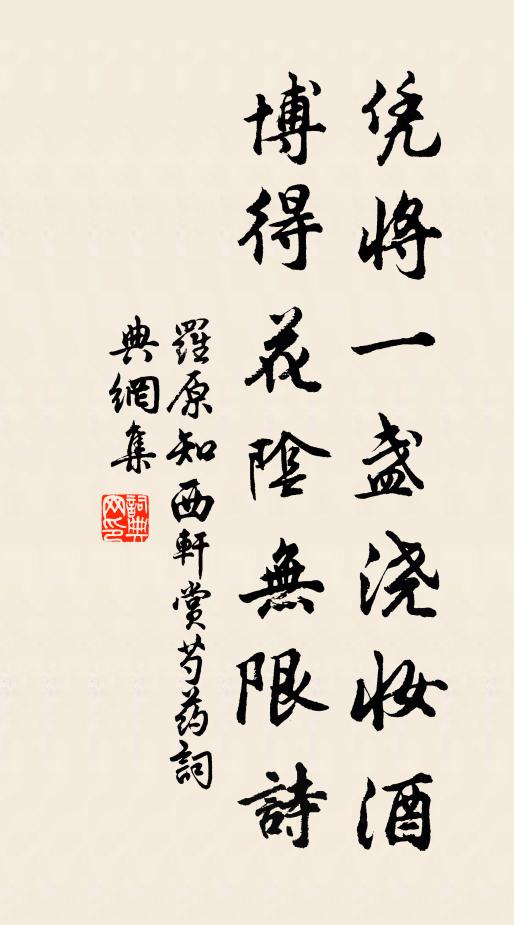 凭將一盏浇妆酒
博得花陰無限詩
羅原知西軒賞芍药詞
典網集
詞典网印